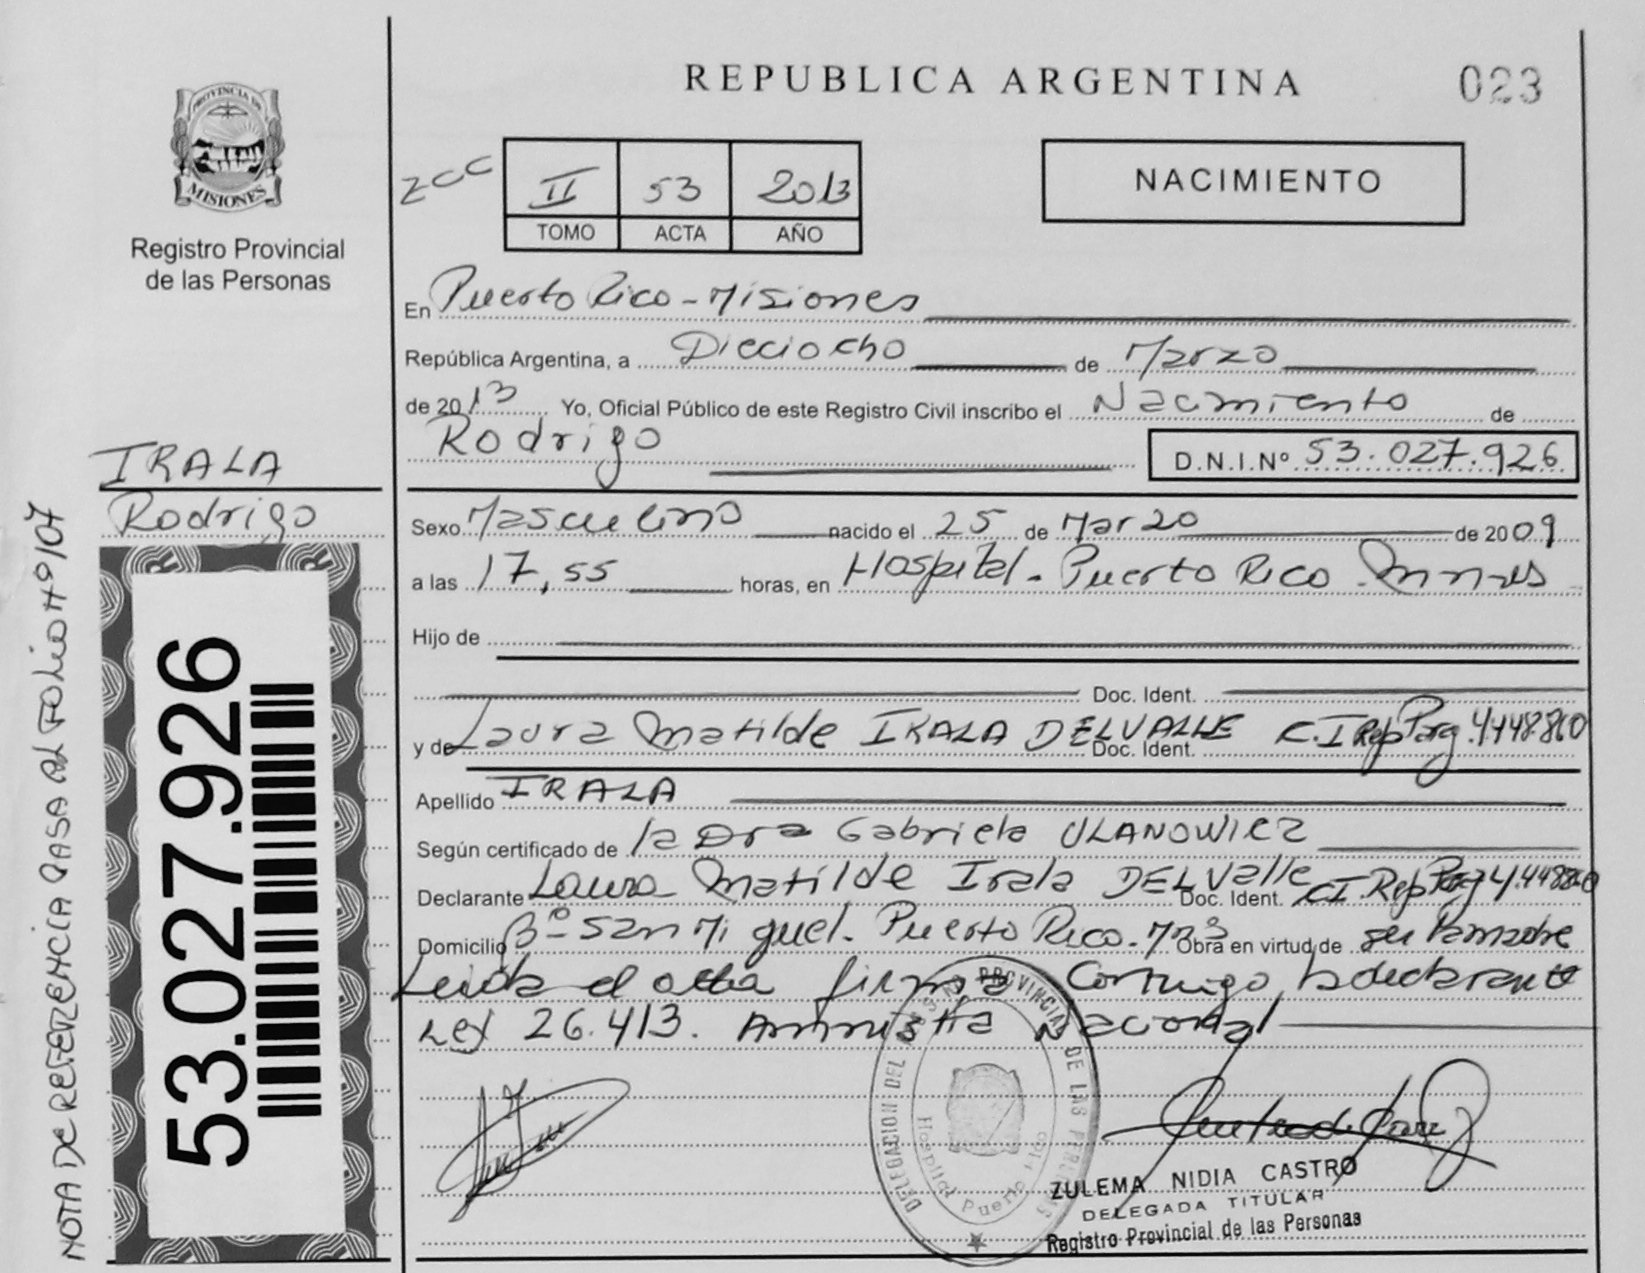 REPUBLICA ARGENTINA
023
PROVINCIA DE
MISIONES
Registro Provincial
de las Personas
II 53 2013
TOMO ACTA AÑO
NACIMIENTO
En Puerto Rico - Misiones
República Argentina, a Dieciocho de Marzo
de 2013 Yo, Oficial Público de este Registro Civil inscribo el Nacimiento de
Rodrigo D.N.I.Nº 53.027.926
IRALA
Rodrigo
Sexo Masculino nacido el 25 de Marzo de 2009
a las 17,55 horas, en Hospital - Puerto Rico
Hijo de
Doc. Ident.
y de Laura Matilde IRALA DELVALLE Doc. Ident. C.I Rep Parg. 4.448.860
Apellido IRALA
Según certificado de la Dra Gabriela ULANOWICZ
Declarante Laura Matilde Irala DELValle Doc. Ident. CI. Rep Parg 4.448860
Domicilio Bº San Miguel - Puerto Rico. Obra en virtud de ser la madre
Leida el acta firma Conmigo la declarante
Ley 26.413. Amnistia Nacional
53.027.926
NOTA DE REFERENCIA PASA AL FOLIO Nº 9/07
DELEGACION DEL PROVINCIAL DE LAS PERSONAS
Hospital Puerto Rico
ZULEMA NIDIA CASTRO
DELEGADA TITULAR
Registro Provincial de las Personas